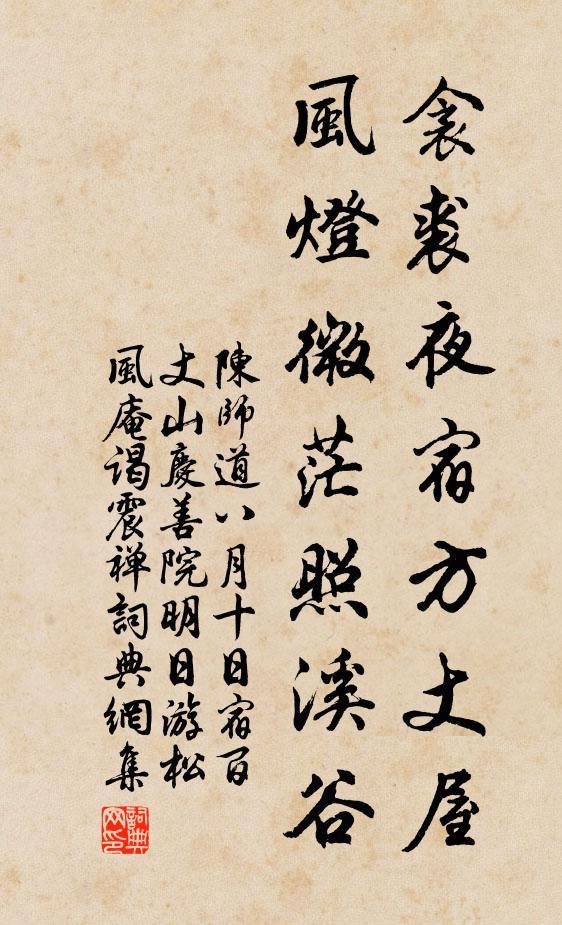 衾裘夜宿方丈屋
風燈微茫照溪谷
陳師道八月十日宿百
丈山慶善院明日游松
風庵謁震禅詞典網集
詞典网印